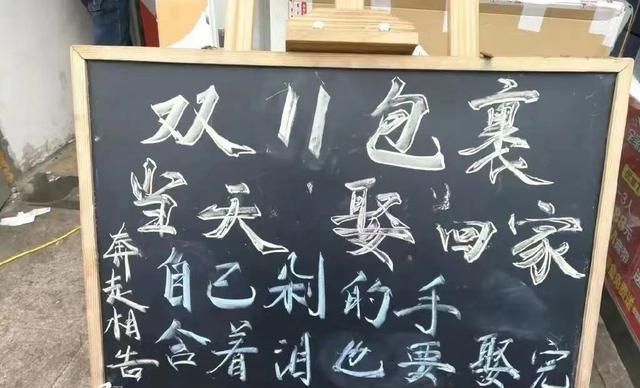 双11包裹
当天 娶回家
自己剁的手
含着泪也要娶完
奔走相告